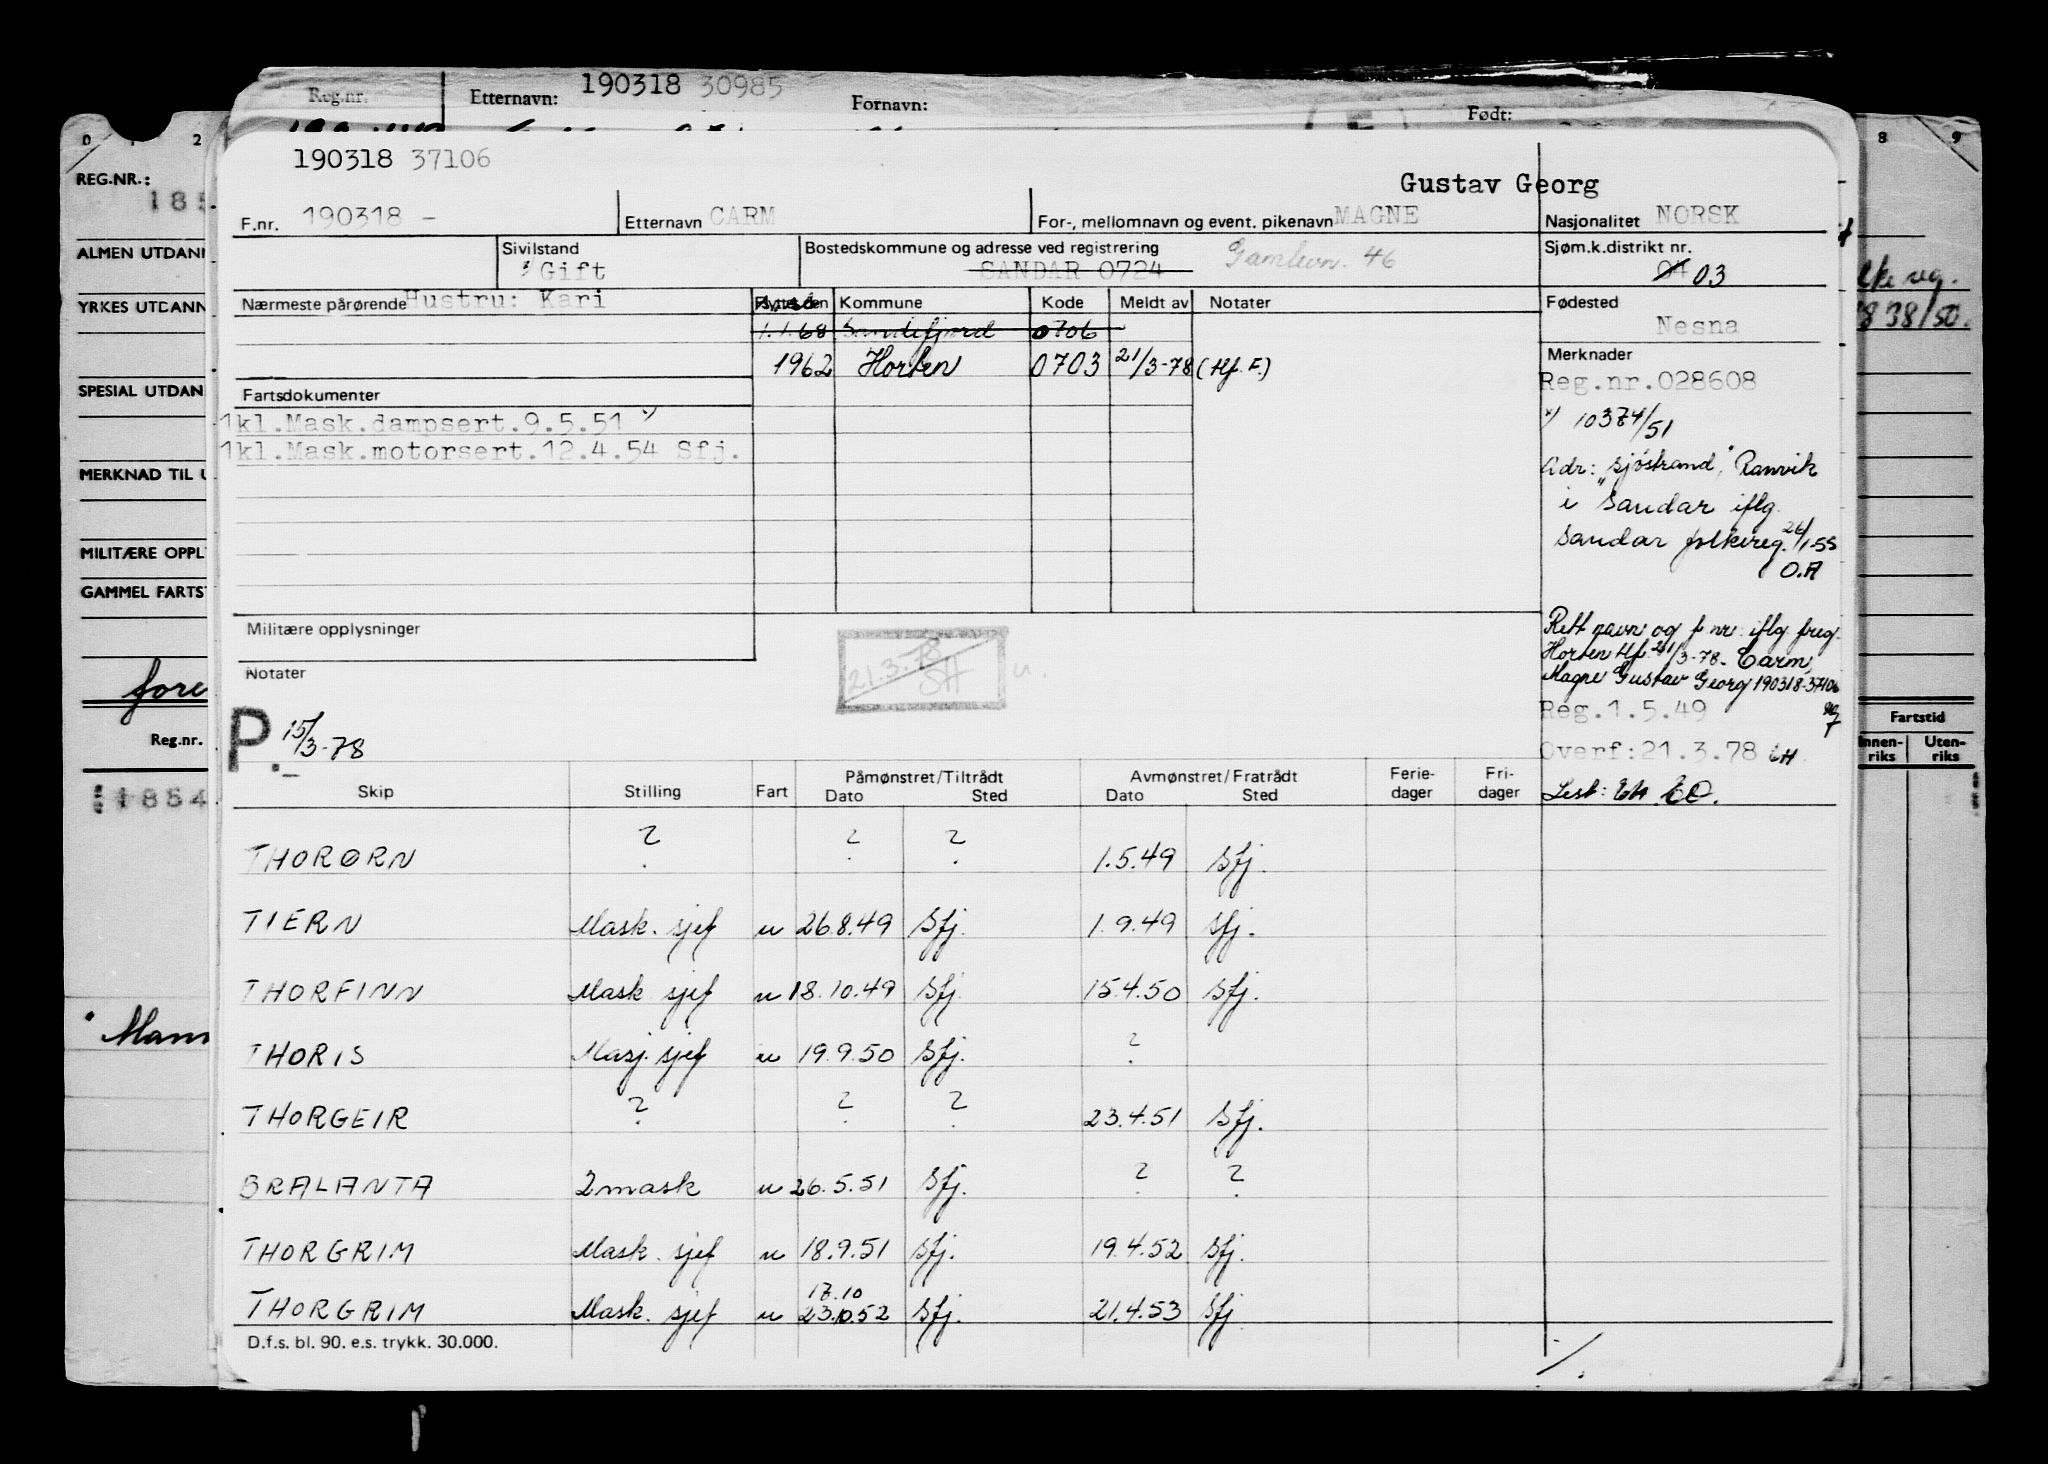 Reg.nr. Etternavn: 190318 30985 Fornavn: Født:
0 1 2 8 9
REG.NR.:
185
ALMEN UTDANN
YRKES UTDANN
SPESIAL UTDAN
MERKNAD TIL U
MILITÆRE OPPL
GAMMEL FARTS
fore
Reg.nr.
1854
Mann
190318 37106
Gustav Georg
F.nr. 190318 - Etternavn CARM For-, mellomnavn og event. pikenavn MAGNE Nasjonalitet NORSK
Sivilstand Bostedskommune og adresse ved registrering Sjøm.k.distrikt nr.
x) Gift SANDAR 0724 Gamlevn. 46 04 03
Nærmeste pårørende Hustru: Kari Kommune Kode Meldt av Notater Fødested
1.1.68 Sandefjord 0706 Nesna
1962 Horten 0703 21/3-78 (Hf. F.) Merknader
Fartsdokumenter Reg.nr.028608
1kl.Mask.dampsert.9.5.51 x) x) 10374/51
1kl.Mask.motorsert.12.4.54 Sfj.
Adr: "Sjøstrand", Ranvik
i Sandar iflg.
Sandar folkereg. 26/1-55
O.A
Militære opplysninger
Rett navn og f nr. iflg freg.
Horten Hf. 21/3-78. Carm,
Magne Gustav Georg 190318-37106
Notater
21.3.78
SH
u.
Reg.1.5.49
P. 15/3-78
Overf:21.3.78 EH
Lest: EH. EO.
Fartstid
Innen-riks Uten-riks
38/50.
Skip Stilling Fart Påmønstret/Tiltrådt Avmønstret/Fratrådt Ferie-dager Fri-dager
Dato Sted Dato Sted
THORØRN ? ? ? 1.5.49 Sfj.
TIERN Mask. sjef u 26.8.49 Sfj. 1.9.49 Sfj.
THORFINN Mask sjef u 18.10.49 Sfj 15.4.50 Sfj.
THORIS Masj. sjef u 19.9.50 Sfj. ?
THORGEIR ? ? ? 23.4.51 Sfj.
BRALANTA 2mask u 26.5.51 Sfj. ? ?
THORGRIM Mask. sjef u 18.9.51 Sfj. 19.4.52 Sfj.
17.10
THORGRIM Mask. sjef u 23.10.52 Sfj. 21.4.53 Sfj
D.f.s. bl. 90. e.s. trykk. 30.000.